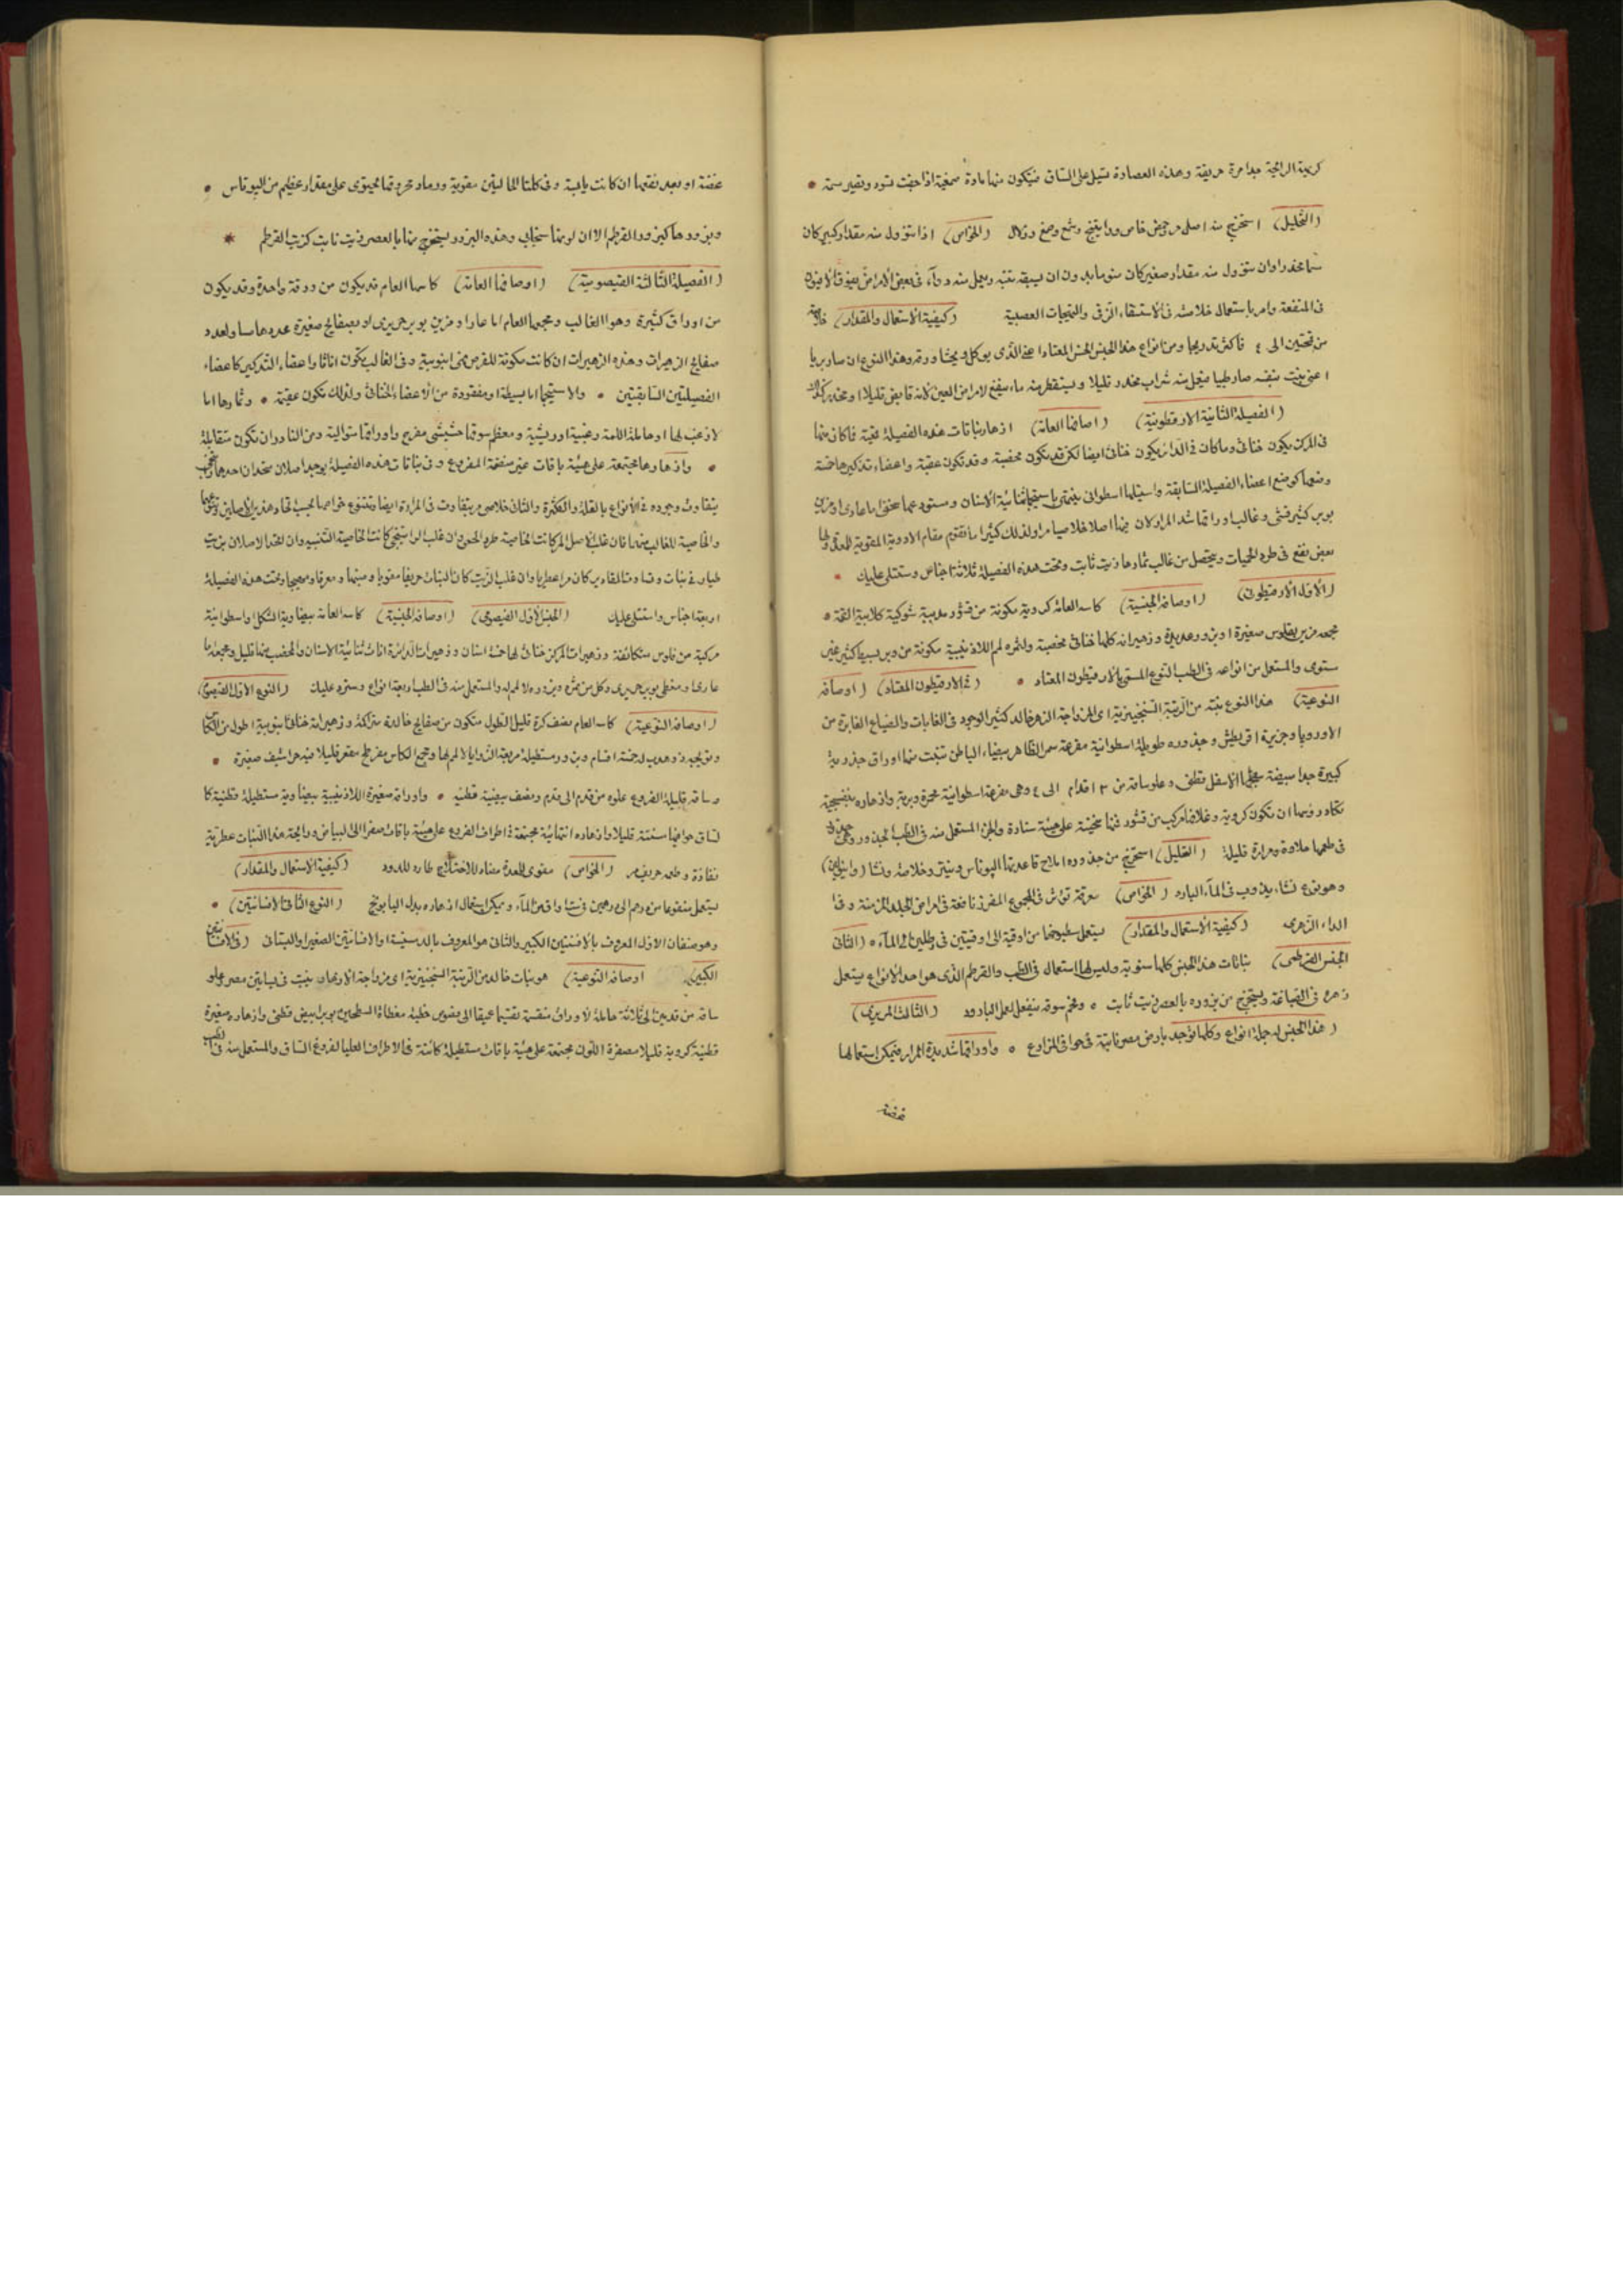 كريهة الرائحة جدا مرة حريفة وهذه العصارة تسيل على الساق فيتكون منها مادة صمغية اذا جفت تسود وتصير سمية
(التحليل) استخرج منه اصل مر وحمض خاص وراتينج وشمع وصمغ (الخواص) اذا تنوول منه مقدار كبير كان
سما مخدرا وان تنوول منه مقدار صغير كان منوما بدون ان يسبقه تنبه ويعمل منه دواء فى بعض الامراض يفوق الافيون
فى المنفعة وامر باستعمال خلاصته فى الاستسقاء الزقى والتهيجات العصبية (كيفية الاستعمال والمقدار)
من قمحتين الى ٤ فاكثر تدريجا ومن انواع هذا الجنس الخس المعتاد اعنى الذى يؤكل وهذا النوع ان صار بريا
اعنى ينبت بنفسه صار طبيا فيعمل منه شراب مخدر قليلا ويستقطر منه ماء ينفع لامراض العين لانه قابض قليلا او مخدر كذلك
(الفصيلة الثانية الارقطيونية) (اوصافها العامة) ازهار نباتات هذه الفصيلة فما كان منها
فى المركز يكون خناثى وما كان فى الدائر يكون خناثى ايضا لكن قد يكون مخصبة وقد تكون عقيمة واعضاء تذكيرها
وضعها كوضع اعضاء الفصيلة السابقة واستيلها اسطوانى ينتهى باستيجماتا ثنائية الاسنان ومستودعها اما عارى او مزين
بوبر كثير فشى وغالب اوراقها شديد المرار لان فيها اصلا خلاصيا مرا ولذلك كثيرا ما تقوم مقام الادوية المقوية للمعدة ولها
بعض نفع فى طرد الحميات ويتحصل من غالب ثمارها زيت ثابت وتحت هذه الفصيلة ثلاثة اجناس وستتلى عليك
(الاول الارقطيون) (اوصافه الجنسية) كاسه العامة كروية مكونة من قشور مدببة شوكية كلابية القمة
مجمعه مزين بفلوس صغيرة وزهيراته كلها خناثى مخصبة وثمره مكونة من وبر بسيط كثير غير
مستوى والمستعمل من انواعه فى الطب النوع المسمى بالارقطيون المعتاد (فى الارقطيون المعتاد) (اوصافه
النوعية) هذا النوع نبته من الرتبة السنجينيزية اى المزدواجة الزهر خالد كثير الوجود فى الغابات والضياع العابرة من
الاوروپا وجزيرة اقريطش وجذوره طويلة اسطوانية متفرعة سمر الظاهر بيضاء الباطن تنبت منها اوراق جذرية
كبيرة جدا بيضية سطحها الاسفل قطنى وعلو ساقه من ٣ اقدام الى ٤ وهى متفرعة اسطوانية محمرة وبرية وازهاره بنفسجية
تكاد رؤسها ان تكون كروية وغلافها مركب من قشور قمتها منحنية على هيئة سنارة والجزء المستعمل منه فى الطب الجذور
فى طعمها حلاوة ومرارة قليلة (التحليل) استخرج من جذوره املاح قاعدتها الپوتاس ونيتر وخلاصة ونشا (واينولين)
وهو نوع نشاء يذوب فى الماء البارد (الخواص) معرقة تؤثر فى المجموع المفرز نافعة فى امراض الجلد المزمنة وفى
الداء الزهرى (كيفية الاستعمال والمقدار) يستعمل مطبوخها من اوقية الى اوقيتين فى رطلين من الماء (الثانى
الجنس القرطمى) نباتات هذا الجنس كلها سنوية وليس لها استعمال فى الطب والقرطم الذى هو احد الانواع يستعمل
زهره فى الصباغة ويستخرج من بزوره بالعصر زيت ثابت وفحم سوقه ينفع لعمل البارود (الثالث المريرى)
(هذا الجنس له جملة انواع وكلها توجد بارض مصر نابتة فى حوافى المزارع واوراقها شديدة المرار فيمكن استعمالها
غضة
غضة او بعد نقعها ان كانت يابسة وفى كلتا الحالتين مقوية ورماد محروقها يحتوى على مقدار عظيم من الپوتاس
وبزورها كبزور القرطم الا ان لونها سنجابى وهذه البزور يستخرج منها بالعصر زيت ثابت كزيت القرطم
(الفصيلة الثالثة القيصومية) (اوصافها العامة) كاسها العام قد يكون من ورقة واحدة وقد يكون
من اوراق كثيرة وهو الغالب ومجمعها العام اما عار او مزين بوبر حريرى او بصفائح صغيرة عددها مساو لعدد
صفائح الزهيرات وهذه الزهيرات ان كانت مكونة للقرص فهى انبوبية وفى الغالب يكون اناثا واعضاء التذكير كاعضاء
الفصيلتين السابقتين والاستيجما اما بسيطة او مفقودة من الاعضاء الخناثى ولذلك تكون عقيمة وثمارها اما
لا زغب لها او حاملة لقمة زغبية او ريشية ومعظم سوقها حشيشى متفرع واوراقها متوالية ومن النادر ان تكون متقابلة
وازهارها مجتمعة على هيئة باقات غير منضمة الفروع وفى نباتات هذه الفصيلة يوجد اصلان متحدان احدهما
يتفاوت وجوده فى الانواع بالقلة والكثرة والثانى خلاصى مر يتفاوت فى المرارة ايضا وتتنوع خواصها بحسب اتحاد هذين الاصلين
والخاصية للغالب منهما فان غلب الاصل المر كانت الخاصية طرد الحمى وان غلب الراتينجى كانت الخاصية التنبيه وان اتحد الاصلان بزيت
طيار فى نبات وتساوت المقادير كان مرا عطريا وان غلب الزيت كان النبات حريفا مقويا ومنبها ومعرقا ومهيجا وتحت هذه الفصيلة
اربعة اجناس وستتلى عليك (الجنس الاول القيصومى) (اوصافه الجنسية) كاسه العامة بيضاوية الشكل او اسطوانية
مركبة من فلوس متكاثفة وزهيرات المركز خناثى لها خمسة اسنان وزهيرات الدائرة اناث ثنائية الاسنان والمخصب منها قليل ومجمعه اما
عارى او مغطى بوبر حريرى وكل من ثمره وبزوره لا لمة له والمستعمل منه فى الطب اربعة انواع وسترد عليك (النوع الاول القيصوم)
(اوصافه النوعية) كاسه العام نصف كرة قليل الطول متكون من صفائح خالدة متراكبة وزهيراته خناثى انبوبية اطول من الكاس
وتويجه ذو هدب له خمسة اقسام وبزوره مستطيلة مربعة الزوايا لا لمة لها ومجمع الكاس مفرطح مقعر قليلا فيه حراشيف صغيرة
وساقه قليلة الفروع علوه من قدم الى قدم ونصف بيضية قطنية واوراقه صغيرة اللاذنيبية بيضاوية مستطيلة قطنية كا
لساق حوافها مسننة قليلا وازهاره انتهائية مجتمعة فى اطراف الفروع على هيئة باقات صفر الى البياض ورائحة هذا النبات عطرية
نفاذة وطعمه حريف مر (الخواص) مقوى للمعدة مضاد للاختلاج طارد للدود (كيفية الاستعمال والمقدار)
يستعمل منقوعا من درهم الى درهمين فى ست اواق من الماء ويمكن استعمال ازهاره بدل البابونج (النوع الثانى الافسنتين)
وهو صنفان الاول المعروف بالافسنتين الكبير والثانى هو المعروف بالدمسيسة او الافسنتين الصغير او البستانى (فى الافسنتين
الكبير) (اوصافه النوعية) هو نبات خالد من الرتبة السنجينيزية اى مزدواجة الازهار ينبت فى بساتين مصر علو
ساقه من قدمين الى ثلاثة حاملة لاوراق منقسمة تقسيما عميقا الى فصوص خطية مغطاة السطحين بوبر ابيض قطنى وازهاره صغيرة
قطنية كروية قليلا مصفرة اللون مجتمعة على هيئة باقات مستطيلة كائنة فى الاطراف العليا لفروع الساق والمستعمل منه فى الطب